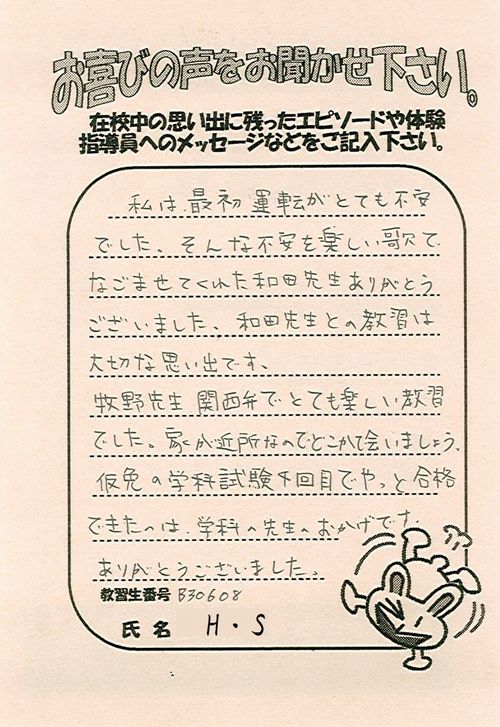 お喜びの声をお聞かせ下さい。
在校中の思い出に残ったエピソードや体験
指導員へのメッセージなどをご記入下さい。
私は最初運転がとても不安
でした。そんな不安を楽しい歌で
なごませてくれた和田先生ありがとう
ございました。和田先生との教習は
大切な思い出です。
牧野先生 関西弁でとても楽しい教習
でした。家が近所なのでどこかで会いましょう。
仮免の学科試験4回目でやっと合格
できたのは、学科の先生のおかげです。
ありがとうございました。
教習生番号 B30608
氏名 H・S